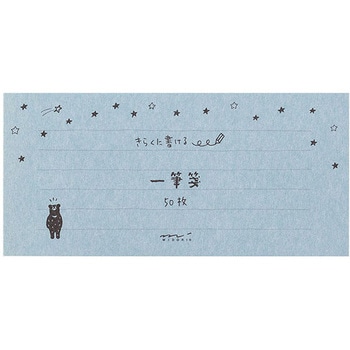 きらくに書ける
一筆箋
50枚
MIDORI